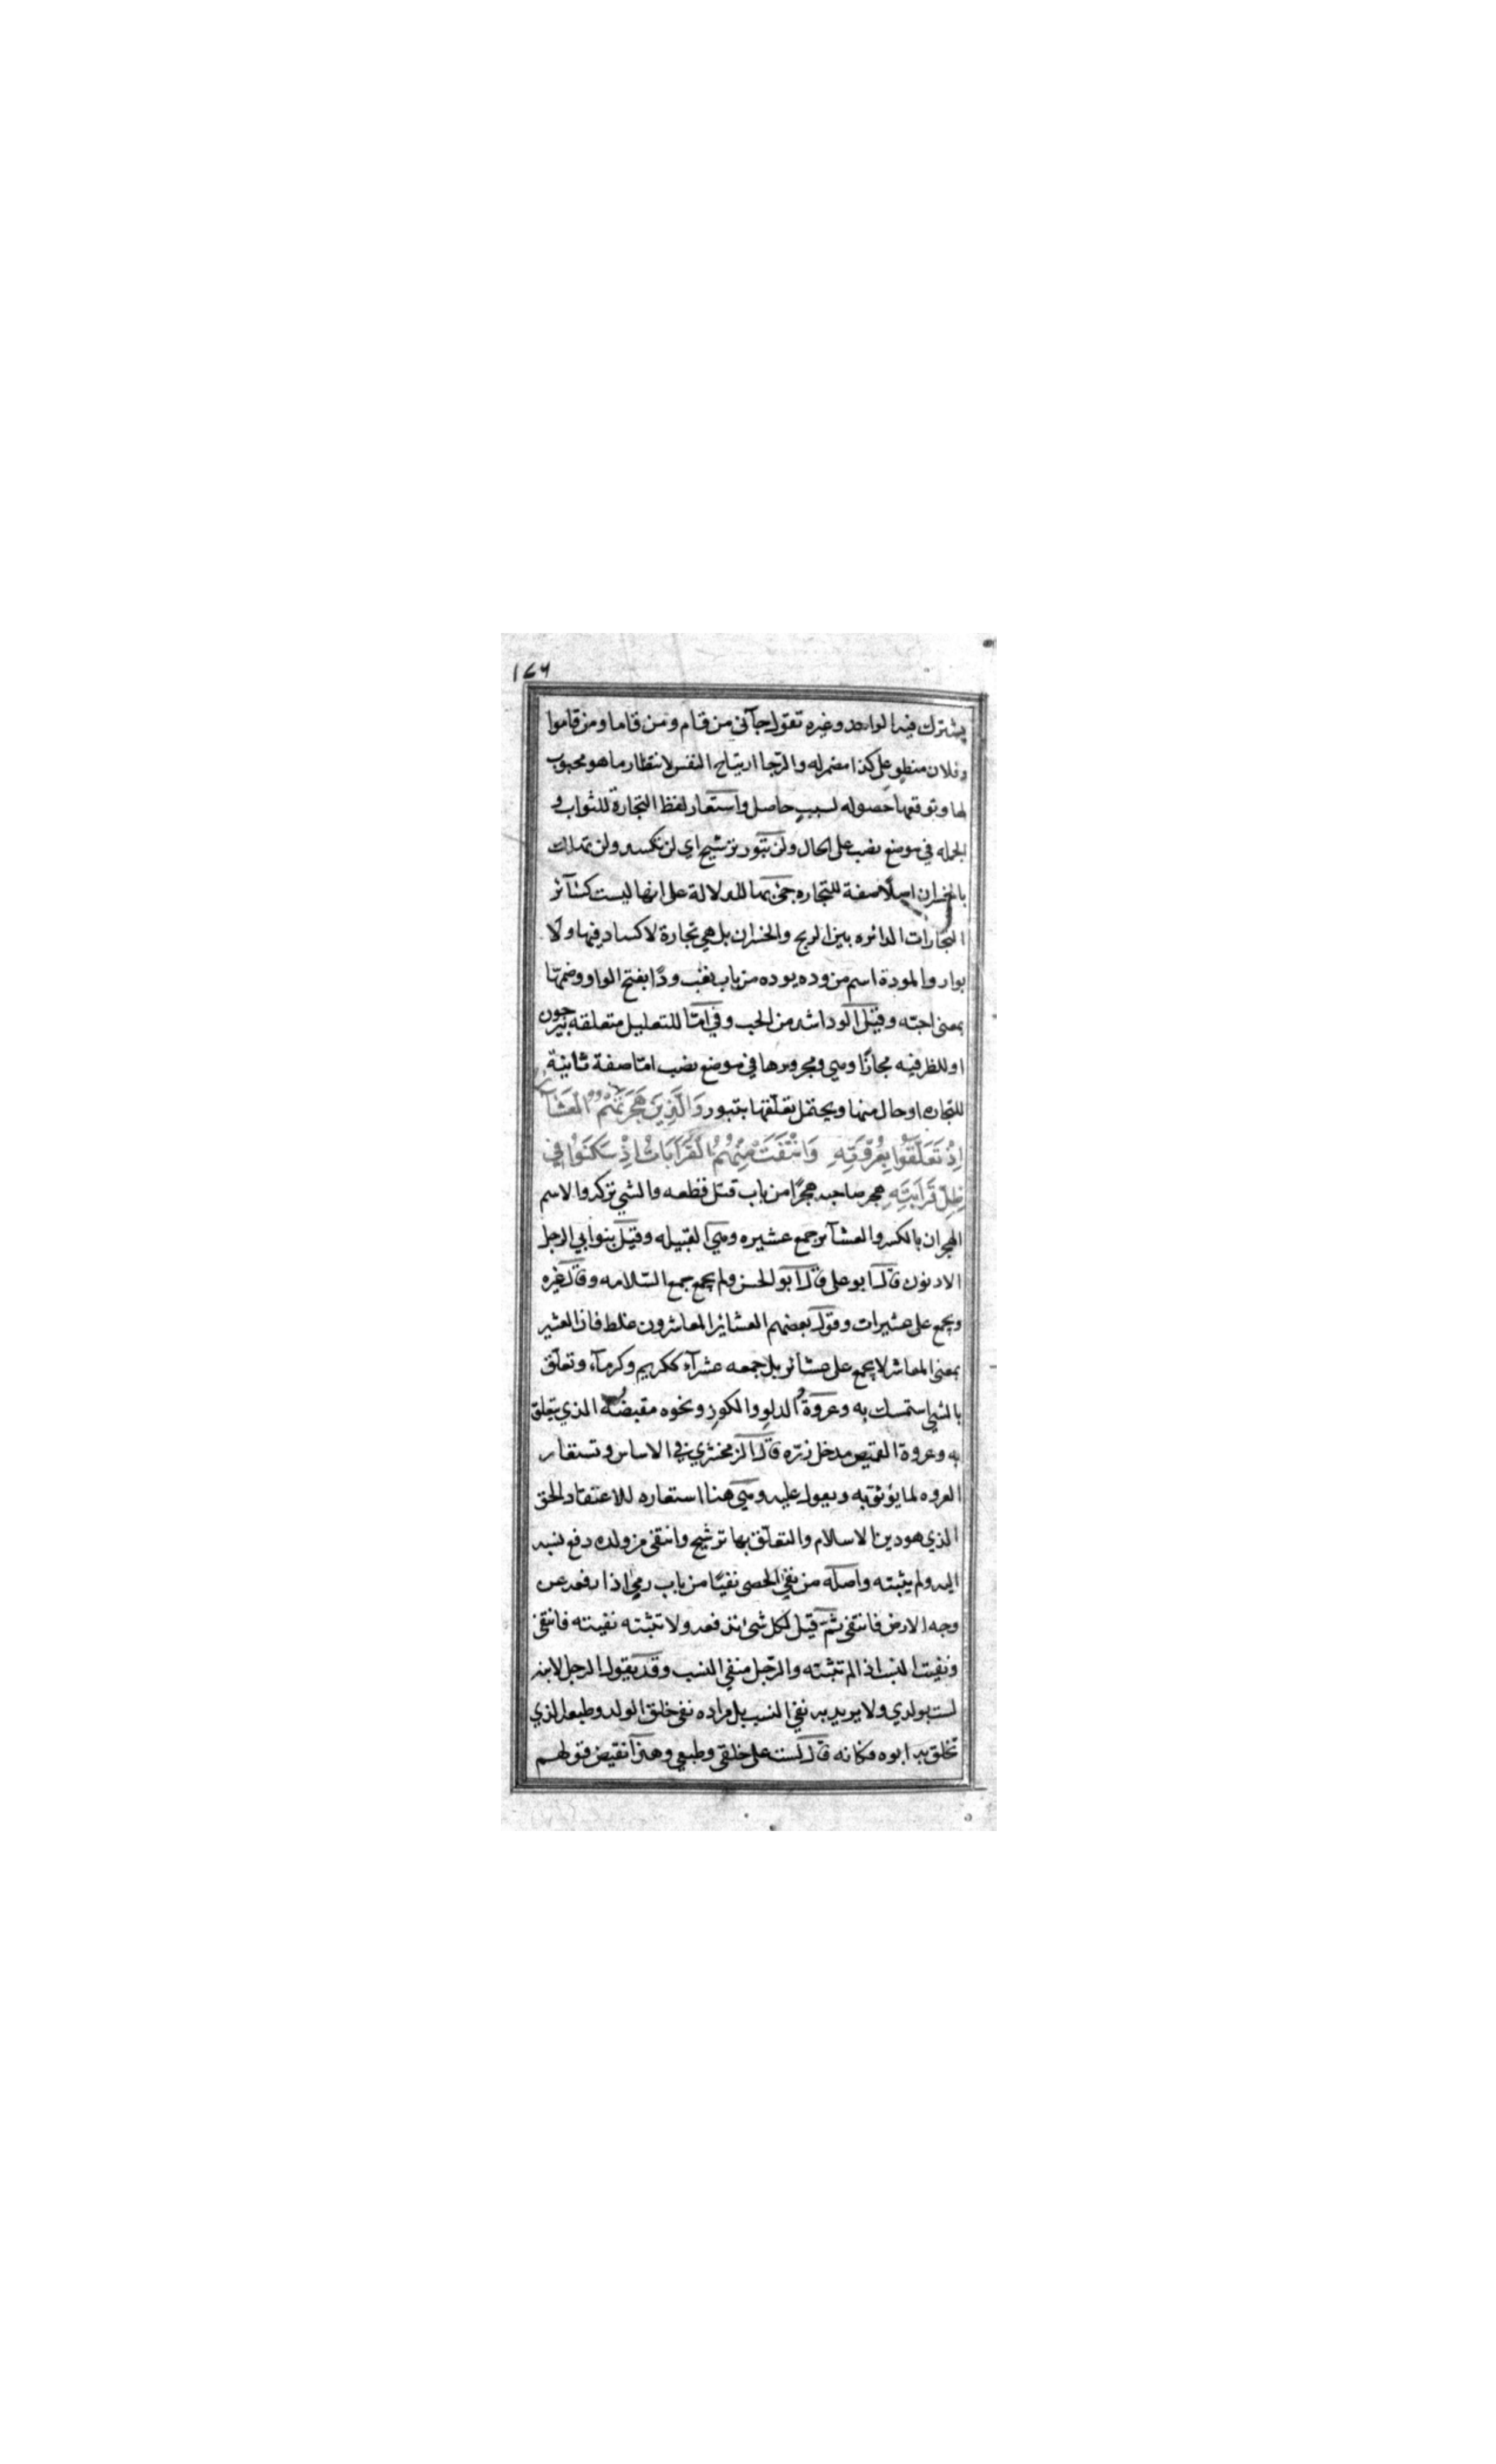 ١٧٦
يشترك فيه الواحد وغيره تقول جآنى من قام ومن قاما ومن قاموا
وفلان منطوٍ على كذا مضمر له والرّجا ارتياح النفس لانتظار ما هو محبوب
لها وتوقعها حصوله لسببٍ حاصل واستعار لفظ التجارة للثواب و
الجمله في موضع نصب على الحال ولن تبور ترشيح اي لن تكسد ولن تهلك
بالخسران اصلًا صفة للتجاره جئ بها للدلالة على انها ليست كسآئر
التجارات الدائره بين الربح والخسران بل هي تجارة لا كساد فيها ولا
بوار والمودة اسم من وده يوده من باب تعب ودًا بفتح الواو وضمها
بمعنى احبّه وقيل الود اشد من الحب وفي امّا للتعليل متعلقه بيرجون
او للظرفيه مجازًا وهي ومجرورها في موضع نصب امّا صفة ثانية
للتجاره او حال منها ويحتمل تعلّقها بتبور وَالَّذِينَ هَجَرَتْهُمُ الْعَشَآئِرُ
اِذْ تَعَلَّقُوا بِعُرْوَتِهِ وَانْتَفَتْ مِنْهُمُ الْقَرَابَاتُ اِذْ سَكَنُوا في
ظِلِّ قَرَابَتِهِ هجر صاحبه هجرًا من باب قتل قطعه والشي تركه والاسم
الهجران بالكسر والعشآئر جمع عشيره وهي القبيله وقيل بنو ابي الرجل
الادنون قال ابو على قال ابو الحسن ولم يجمع جمع السّلامه وقال غيره
ويجمع على عشيرات وقول بعضهم العشاير المعاشرون غلط فان العشير
بمعنى المعاشر لا يجمع على عشائر بل جمعه عشرآء ككريم وكرمآء وتعلّق
بالشي استمسك به وعروة الدلو والكوز ونحوه مقبضه الذي يتعلق
به وعروة القميص مدخل زرّه قال الزمخشري في الاساس وتستعار
العروه لما يوثق به ويعول عليه وهي هنا استعاره للاعتقاد الحق
الذي هو دين الاسلام والتعلّق بها ترشيح وانتفى من ولده دفع نسبه
اليه ولم يثبته واصله من نفي الحصى نفيًا من باب رمي اذا رفعه عن
وجه الارض فانتفى ثم قيل لكل شى تدفعه ولا تثبته نفيته فانتفى
ونفيت النسب اذا لم تثبته والرّجل منفي النسب وقد يقول الرجل لابنه
لست بولدي ولا يريد به نفي النسب بل مراده نفى خلق الولد وطبعه الذي
تخلق به ابوه فكانه قال لست على خلقي وطبعي وهذا نقيض قولهم